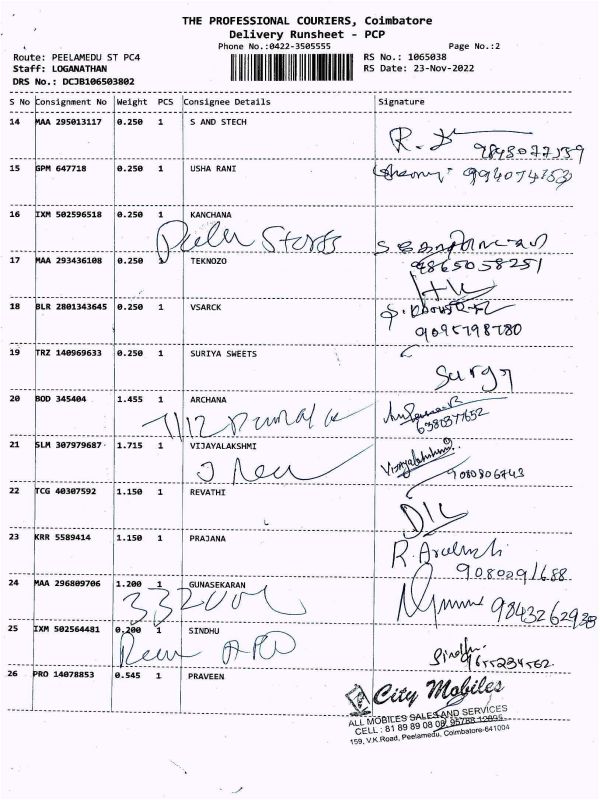 THE PROFESSIONAL COURIERS, Coimbatore
Delivery Runsheet - PCP
Phone No.:0422-3505555 Page No.:2
Route: PEELAMEDU ST PC4 RS No.: 1065038
Staff: LOGANATHAN RS Date: 23-Nov-2022
DRS No.: DCJB106503802
S No Consignment No Weight PCS Consignee Details Signature
14 MAA 295013117 0.250 1 S AND STECH
15 GPM 647718 0.250 1 USHA RANI
16 IXM 502596518 0.250 1 KANCHANA
17 MAA 293436108 0.250 1 TEKNOZO
9865058251
18 BLR 2801343645 0.250 1 VSARCK
9095798780
19 TRZ 140969633 0.250 1 SURIYA SWEETS
20 BOD 345404 1.455 1 ARCHANA
21 SLM 307979687 1.715 1 VIJAYALAKSHMI
Vijayalakshmi
22 TCG 40307592 1.150 1 REVATHI
23 KRR 5589414 1.150 1 PRAJANA
24 MAA 296809706 1.200 1 GUNASEKARAN
25 IXM 502564481 0.200 1 SINDHU
Sindhu
26 PRO 14078853 0.545 1 PRAVEEN
City Mobiles
ALL MOBILES SALES AND SERVICES
CELL : 81 89 89 08 08, 95788 12695
159, V.K.Road, Peelamedu, Coimbatore-641004